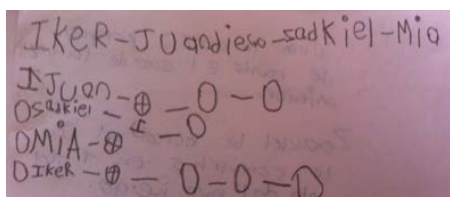 IKER-JUandieso-sadKiel-Mia
IJuan-⊕-O-O
Osadkiel-
OMiA-⊕-O
OIkeR-⊕-O-O-O